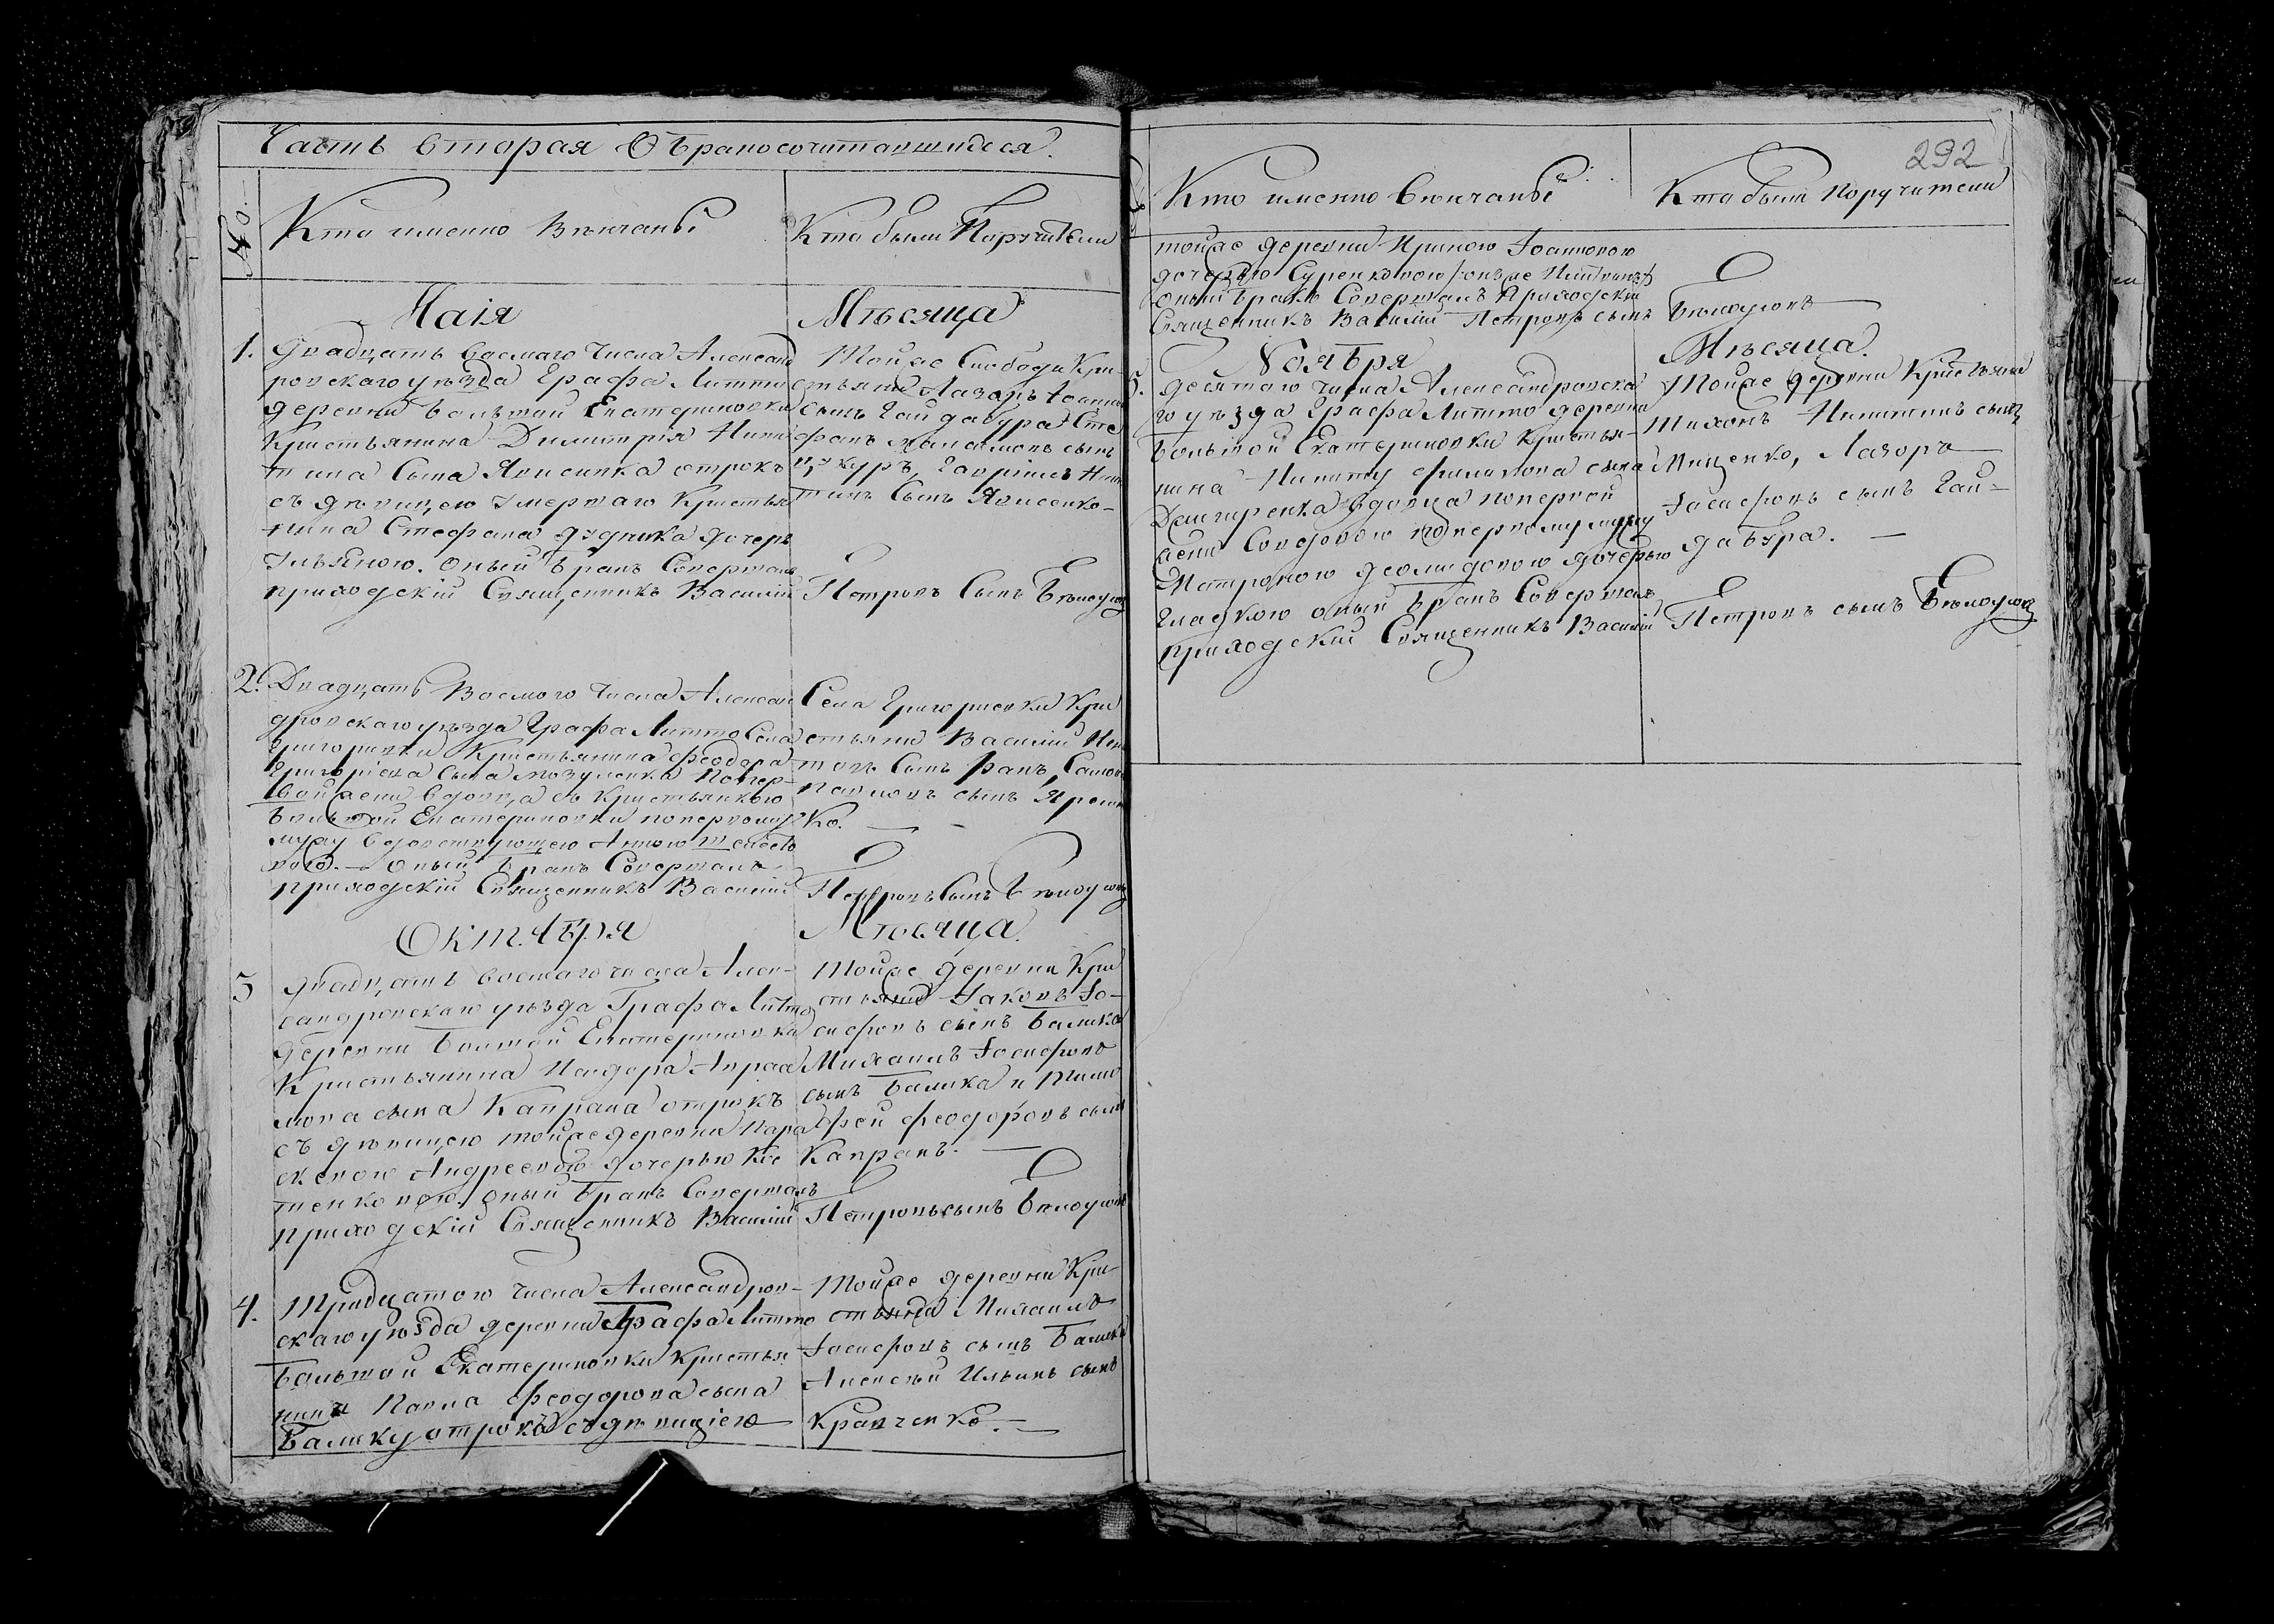 Часть вторая О бракосочитавшихся.
№
Кто именно венчаны
Кто были Поручители
Маія
Месяца
1.
Двадцать восмаго числа Александ
ровскаго уезда Графа Литти
деревни Большой Екатериновки
Кристьянина Димитрія Ники
тина сына Ависенка отрокъ
съ девицею умершаго Кристья
нина Стефана дочерь
Ульяною. оный бракъ Совершалъ
приходскій Священникъ Василій
Тойже Слободы Кри
стьяне Лазоръ Іоаннов
сынъ Гайдабура Сте
фанъ сынъ
Гавріилъ Ники
тинъ Сынъ Ависенко
Петровъ Сынъ Белоусов
2.
Двадцать Восмого числа Алексан
дровскаго уезда Графа Литто Села
Григориевки Кристьянина Феодора
Григоріева Сына Мозуленка по пер-
вой жене вдовца съ Кристьянкою
большой Екатериновки по первому
мужу вдовствующею Анною
оный бракъ Совершалъ
приходскій Священникъ Василій
Села Григориевки Кри
стьяне Василий
сынъ
сынъ
ко.
Петровъ Сынъ Белоусов
Октября
Месяца
3
двадцать восмаго числа Алек-
сандровскаго уезда Графа Литто
деревни Болшой Екатериновки
Кристьянина Исидора Авраа
мова сына Капрана отрокъ
съ девицею тойже деревни Пара
скевою Андреевою дочерью Кос
тенковою. оный бракъ Совершалъ
приходскій Священникъ Василій
Тойже деревни Кри
стьяне Іаковъ Іо-
сифовъ сынъ Балика
Михаилъ Іосифовъ
сынъ Балика и Тимо
фей Феодоровъ сынъ
Капранъ.
Петровъ сынъ Белоусовъ
4.
Тридцатого числа Александров-
скаго уезда деревни Графа Литто
Большой Екатериновки Кристья
нина Павла Феодорова сына
Балику отрокъ съ девицею
Тойже деревни Кри-
стьяне Михаилъ
Іосифовъ сынъ Балика
Алексей Ильинъ сынъ
Кравченко.
292
Кто именно венчаны
Кто были поручители
тойже деревни Ириною Іоанновою
дочерью Суренковою
оный бракъ Совершалъ Приходскій
Священникъ Василій Петровъ сынъ
Белоусовъ
Ноября
Месяца.
5.
десятого числа Александровска
го уезда Графа Литто деревни
Большой Екатериновки Кристья-
нина Никиту Филипова сына
вдовца по первой
жене Совдовою по первому мужу
Матроною Деомидовою дочерью
Гладкою оный бракъ Совершалъ
приходский Священникъ Василій
Тойже деревни Кристьяне
Тихонъ Никитинъ сынъ
Мищенко, Лазоръ
Іосифовъ сынъ Гай-
дабура.
Петровъ сынъ Белоусов